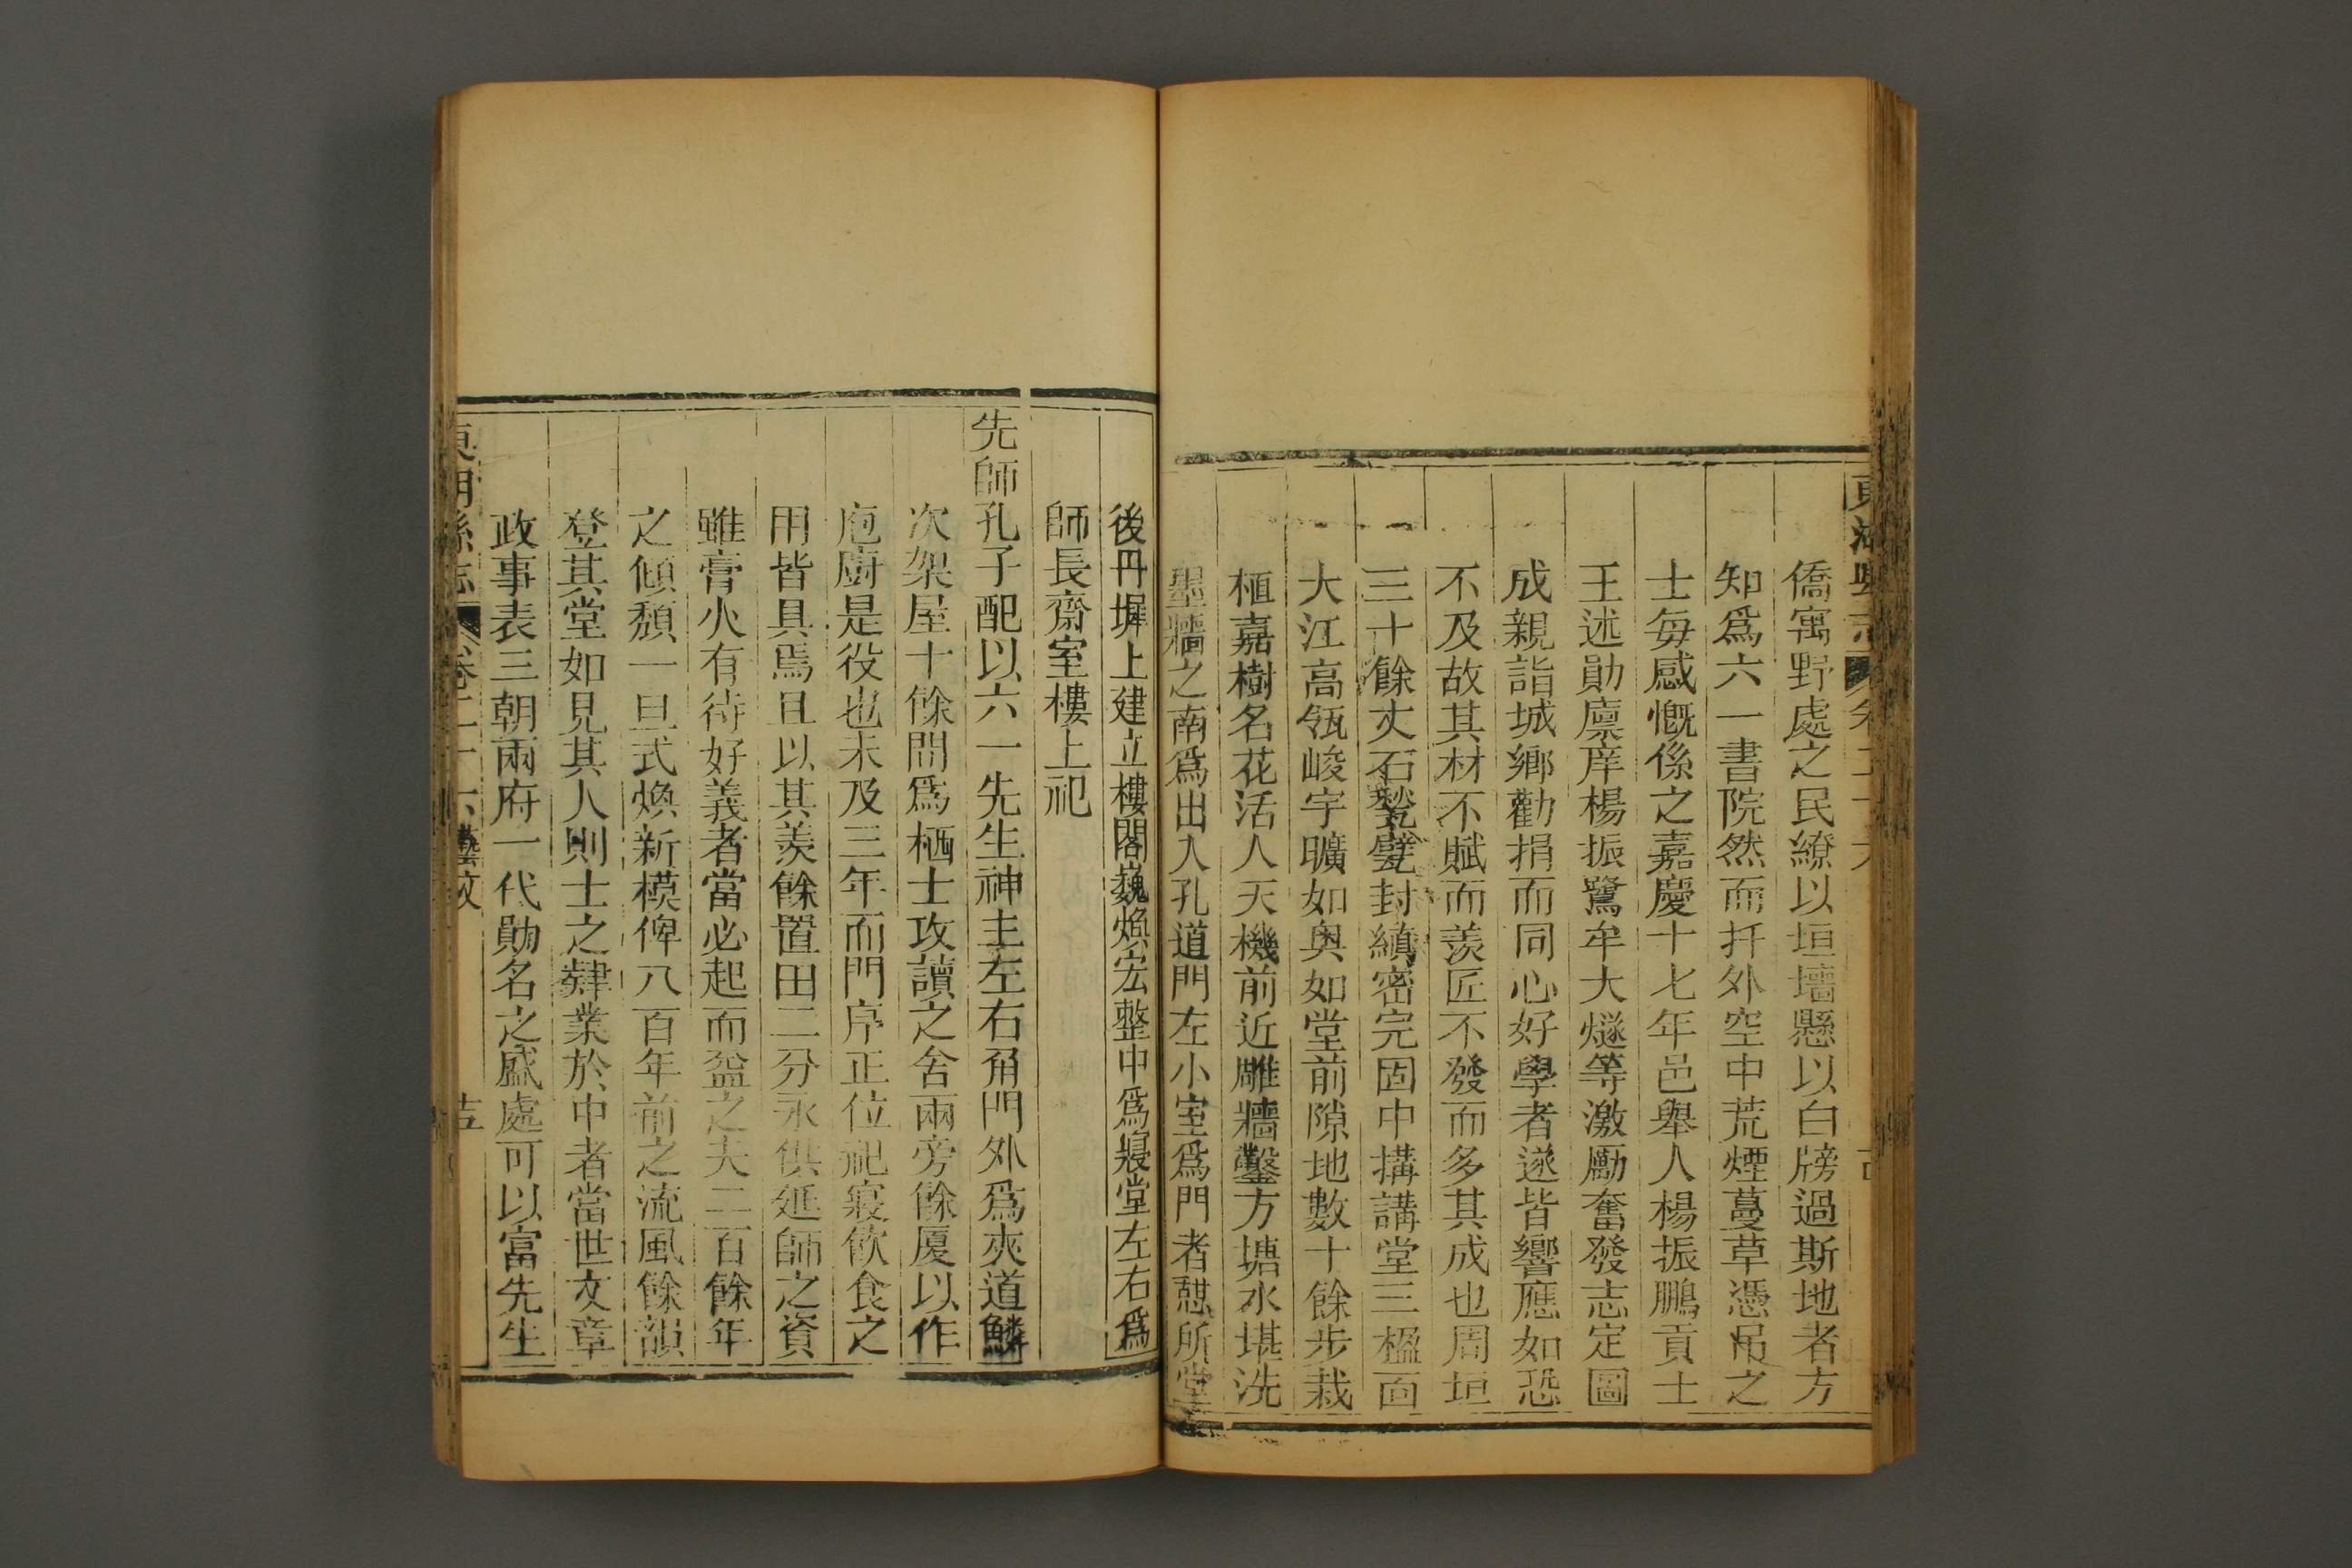 東湖縣志 卷二十六
僑寓野處之民繚以垣墻懸以白牓過斯地者方
知爲六一書院然而扞外空中荒煙蔓草憑吊之
士每感慨係之嘉慶十七年邑舉人楊振鵬貢士
王述勛廪庠楊振鷺牟大燧等激勵奮發志定圖
成親詣城鄉勸捐而同心好學者遂皆響應如恐
不及故其材不賦而羨匠不發而多其成也周垣
三十餘丈石甃甓封縝密完固中搆講堂三楹面
大江高瓴峻宇曠如奥如堂前隙地數十餘步栽
植嘉樹名花活人天機前近雕牆鑿方塘水堪洗
墨牆之南爲出入孔道門左小室爲門者憩所堂
後丹墀上建立樓閣巍煥宏整中爲寢堂左右爲
師長齋室樓上祀
先師孔子配以六一先生神主左右角門外爲夾道鱗
次架屋十餘間爲栖士攻讀之舍兩旁餘厦以作
庖廚是役也未及三年而門序正位祀寢飲食之
用皆具焉且以其羨餘置田二分永供延師之資
雖膏火有待好義者當必起而益之夫二百餘年
之傾頽一旦式煥新模俾八百年前之流風餘韻
登其堂如見其人則士之肄業於中者當世文章
政事表三朝兩府一代勛名之盛處可以富先生
東湖縣志 卷二十六 藝文